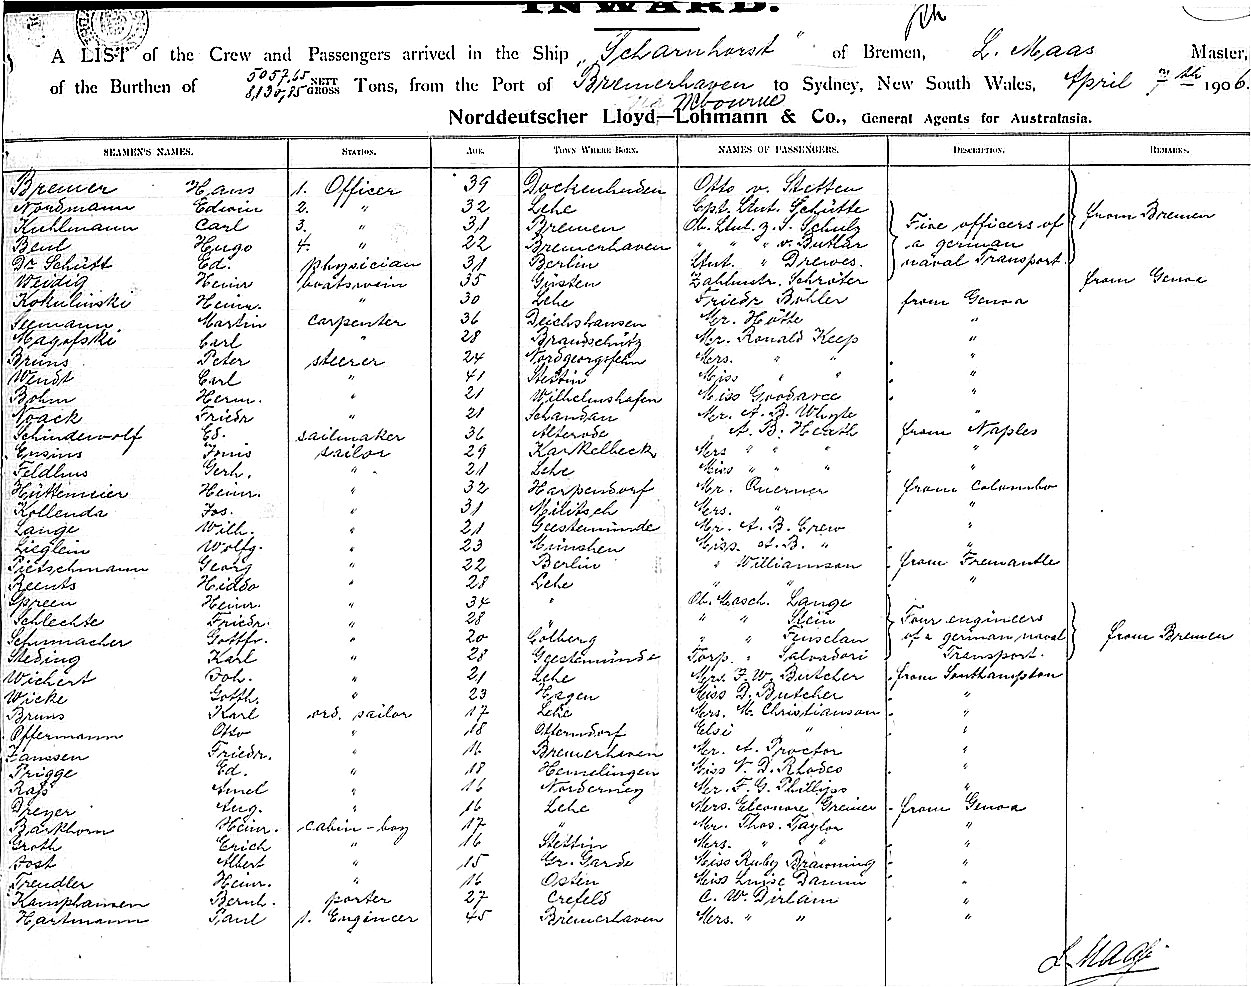 INWARD.
A LIST of the Crew and Passengers arrived in the Ship "Scharnhorst" of Bremen, L. Maas Master,
of the Burthen of 5057,65 NETT 8130,85 GROSS Tons, from the Port of Bremerhaven to Sydney, New South Wales, April 7th 1906.
via Mbourne
Norddeutscher Lloyd—Lohmann & Co., General Agents for Australasia.
SEAMEN'S NAMES. STATION. AGE. TOWN WHERE BORN. NAMES OF PASSENGERS. DESCRIPTION. REMARKS.
Bremer Hans 1. Officer 39 Dockenhuden Otto v. Stetten
Nordmann Edwin 2. " 32 Lehe Cpt. Ltnt. Schütte
Kuhlmann Carl 3. " 31 Bremen Ob. Ltnt. z. S. Schulz Five officers of from Bremen
Beul Hugo 4. " 22 Bremerhaven " " " v. Butlar a german
Dr Schütt Ed. physician 31 Berlin Ltnt. " Drewes. naval Transport.
Weidig Heinr boatswein 35 Güsten Zahlmstr. Schröter from Genoa
Kokulinski Heinr. " 30 Lehe Friedr Böhler from Genoa
Seemann. Martin carpenter 36 Deichshausen Mr. Hötte "
Magofski Carl " 28 Brandschütz Mr. Ronald Keep "
Bruns Peter steerer 24 Nordgeorgsfehn Mrs. " " "
Wendt Carl " 41 Stettin Miss " " "
Bohm Herm. " 21 Wilhelmshafen Miss Goodaree "
Noack Friedr " 21 Schandau Mr. A. B. Whyte "
Schindewolf Ed. sailmaker 36 Alterode " A. B. Heath from Naples
Ensins Tonis sailor 29 Karkelbeck Mrs " " " "
Feldhus Gerh. " 21 Lehe Miss " " " "
Hüttemeier Heinr. " 32 Harpendorf Mr. Querner from Colombo
Kollenda Jos. " 31 Militsch Mrs. " "
Lange Wilh. " 21 Geestemünde Mr. A. B. Crew "
Zieglein Wolfg. " 23 München Miss. A. B. " "
Pietschmann Georg " 22 Berlin " Williamson from Fremantle
Reents Hiddo " 28 Lehe " " "
Spreen Heinr. " 34 " Ob. Masch. Lange
Schlechte Friedr. " 28 " " Stein Four engineers
Schumacher Gottfr. " 20 Gölberg " " Fenselau of a german naval from Bremen
Steding Karl " 28 Geestemünde Torp. " Salvadori Transport.
Wichert Joh. " 21 Lehe Mrs. F. W. Butcher from Southampton
Wicke Gotth. " 23 Hagen Miss D. Butcher "
Bruns Karl ord. sailor 17 Lehe Mrs. M. Christianson "
Offermann Otto " 18 Otterndorf Elsi " "
Janssen Friedr. " 16 Bremerhaven Mr. A. Proctor "
Prigge Ed. " 18 Hemelingen Miss V. D. Rhodes "
Rass Amel " 16 Norderney Mr. F. G. Phillips "
Dreyer Aug. " 16 Lehe Mrs. Eleonore Greiner from Genoa
Barkhorn Heinr. cabin-boy 17 " Mr. Thos. Taylor "
Groth Erich " 16 Stettin Mrs. " " "
Jost Albert " 15 Gr. Garde Miss Ruby Browning "
Trendler Heinr. " 16 Osten Miss Luise Damm "
Kamphausen Bernh. porter 27 Crefeld C. W. Dirlam "
Hartmann Paul 1. Engineer 45 Bremerhaven Mrs. " " "
L. Maas